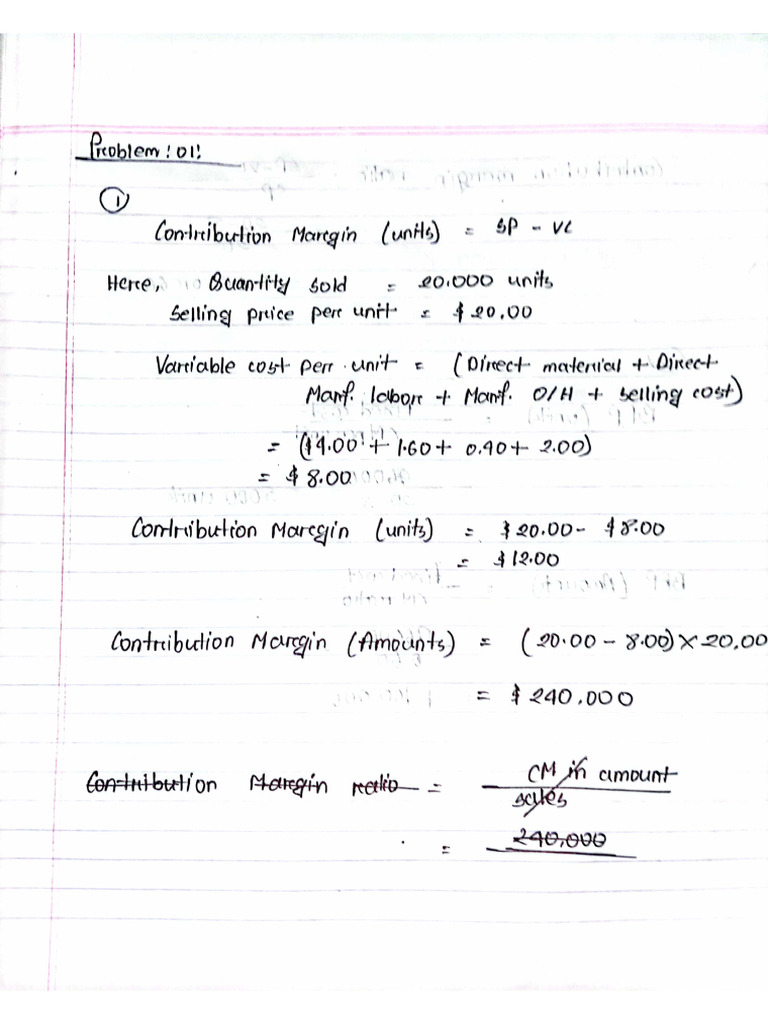 Problem: 01:
①
Contribution Margin (units) = SP - VC
Here, Quantity sold = 20.000 units
Selling price per unit = $20.00
Variable cost per unit = (Direct material + Direct
Manf. labor + Manf. O/H + selling cost)
= ($4.00 + 1.60 + 0.40 + 2.00)
= $8.00
Contribution Margin (units) = $20.00 - $8.00
= $12.00
Contribution Margin (Amounts) = (20.00 - 8.00) × 20,00
= $240,000
Contribution Margin ratio = CM in amount
sales
= 240,000